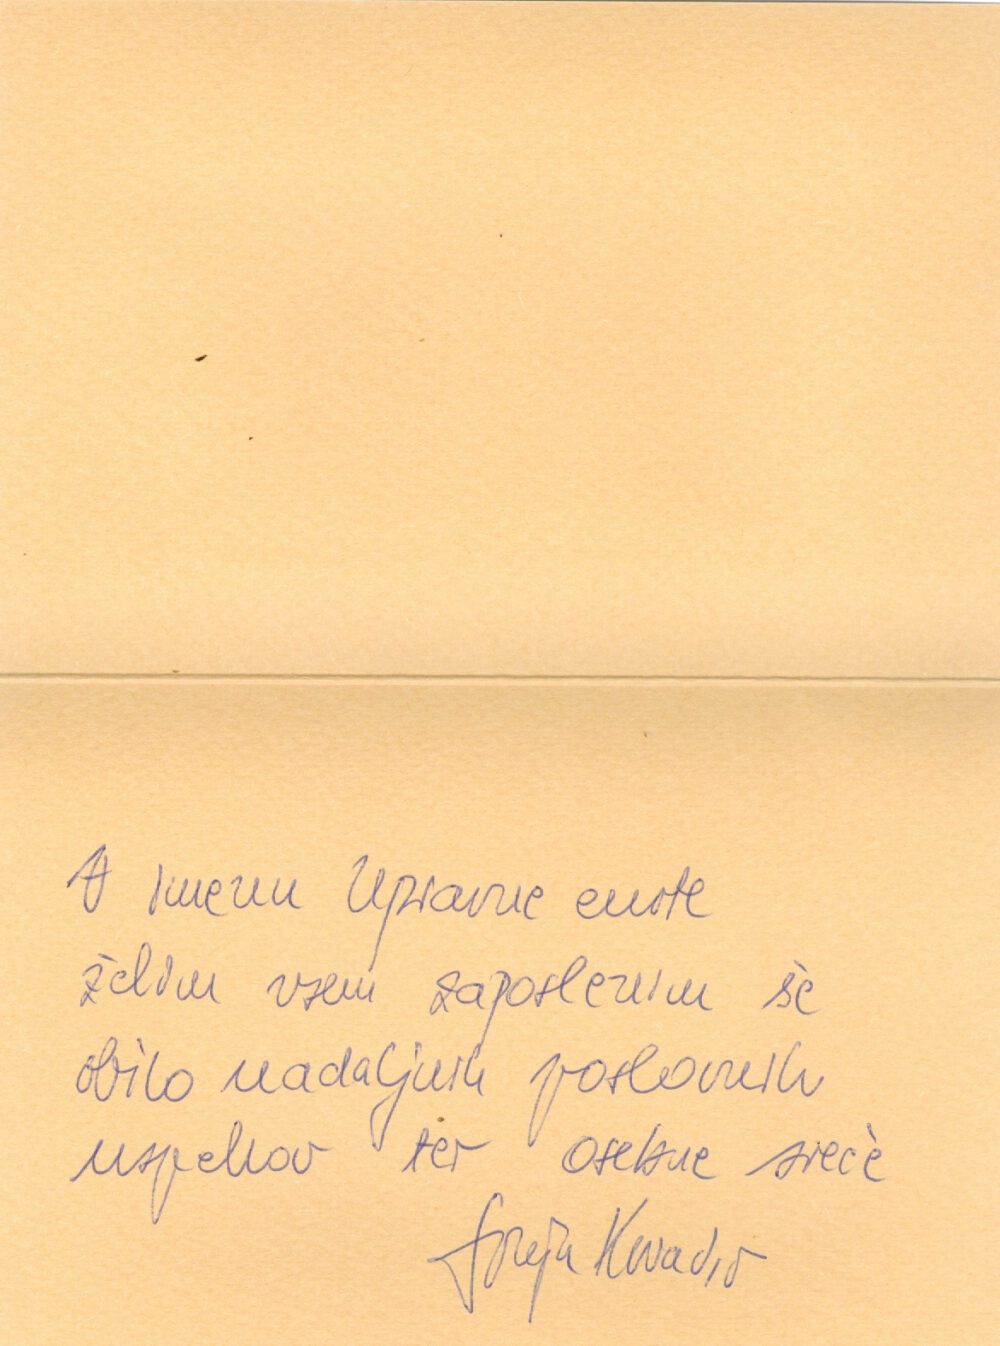 V imenu Upravne enote
želim vsem zaposlenim še
obilo nadaljnih poslovnih
uspehov ter osebne sreče